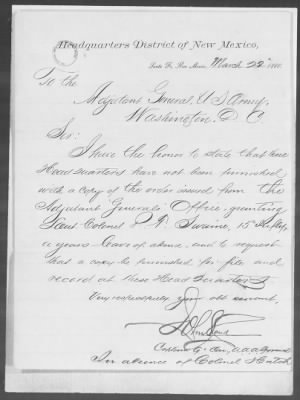 Headquarters District of New Mexico,
Santa Fe, New Mexico, March 22nd 1880.
To the
Adjutant General, U S Army,
Washington, D C.
Sir:
I have the honor to state that these
Head Quarters have not been furnished
with a copy of the order issued from the
Adjutant Generals Office, granting
Lieut Colonel P. T. Swaine, 15th Inftry,
a years leave of absence, and to request
that a copy be furnished for file and
record at these Head Quarters
Very respectfully, your obt servant,
Captain
In absence of Colonel Hatch